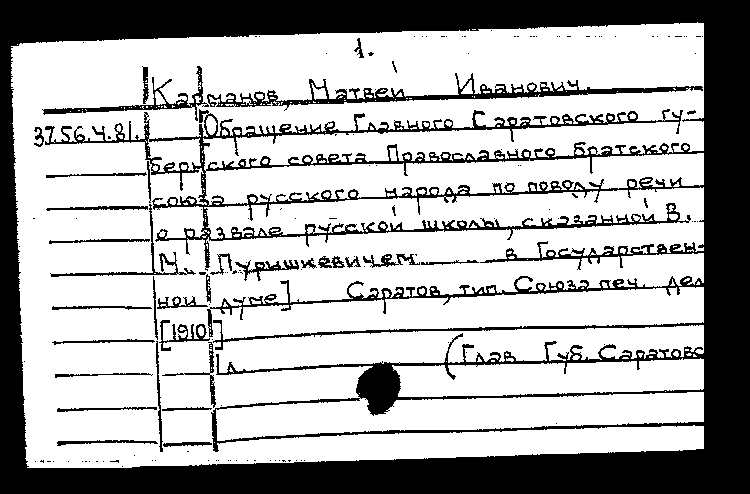 1.
Карманов, Матвей Иванович.
37.56.4.81. [Обращение Главного Саратовского гу-
бернского совета Православного братского
союза русского народа по поводу речи
о развале русской школы, сказанной В.
М. Пуришкевичем в Государствен-
ной думе]. Саратов, тип. Союза печ. дел
[1910]
1 л. (Глав Губ. Саратовс